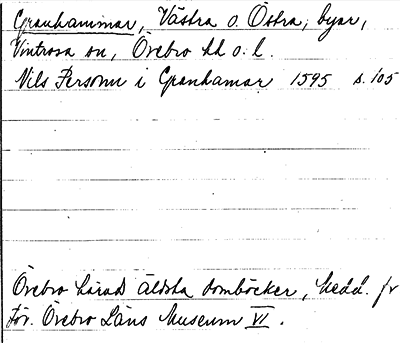 Granhammar, Västra o. Östra, byar,
Vintrosa sn, Örebro hd o. l.
Nils Personn i Granhamar 1595 s. 105
Örebro härads äldsta domböcker, Medd. fr
För. Örebro Läns Museum VI.